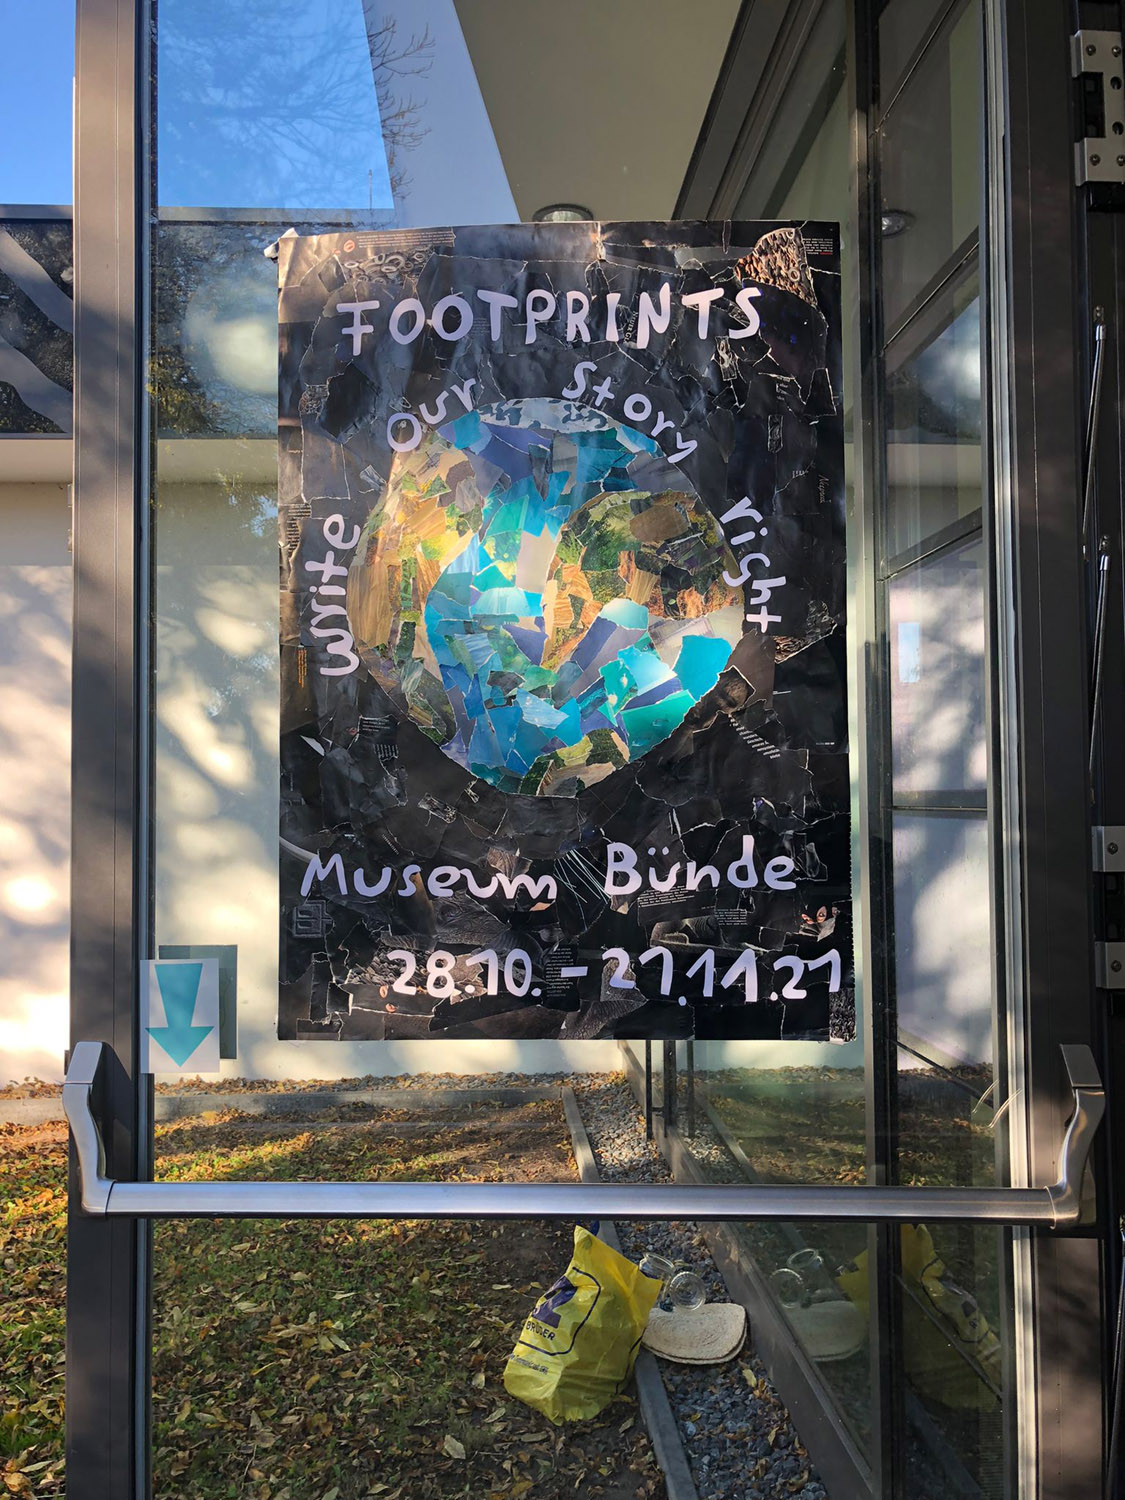 FOOTPRINTS
Write Our Story right
Museum Bünde
28.10. - 27.11.21
BRÜDER